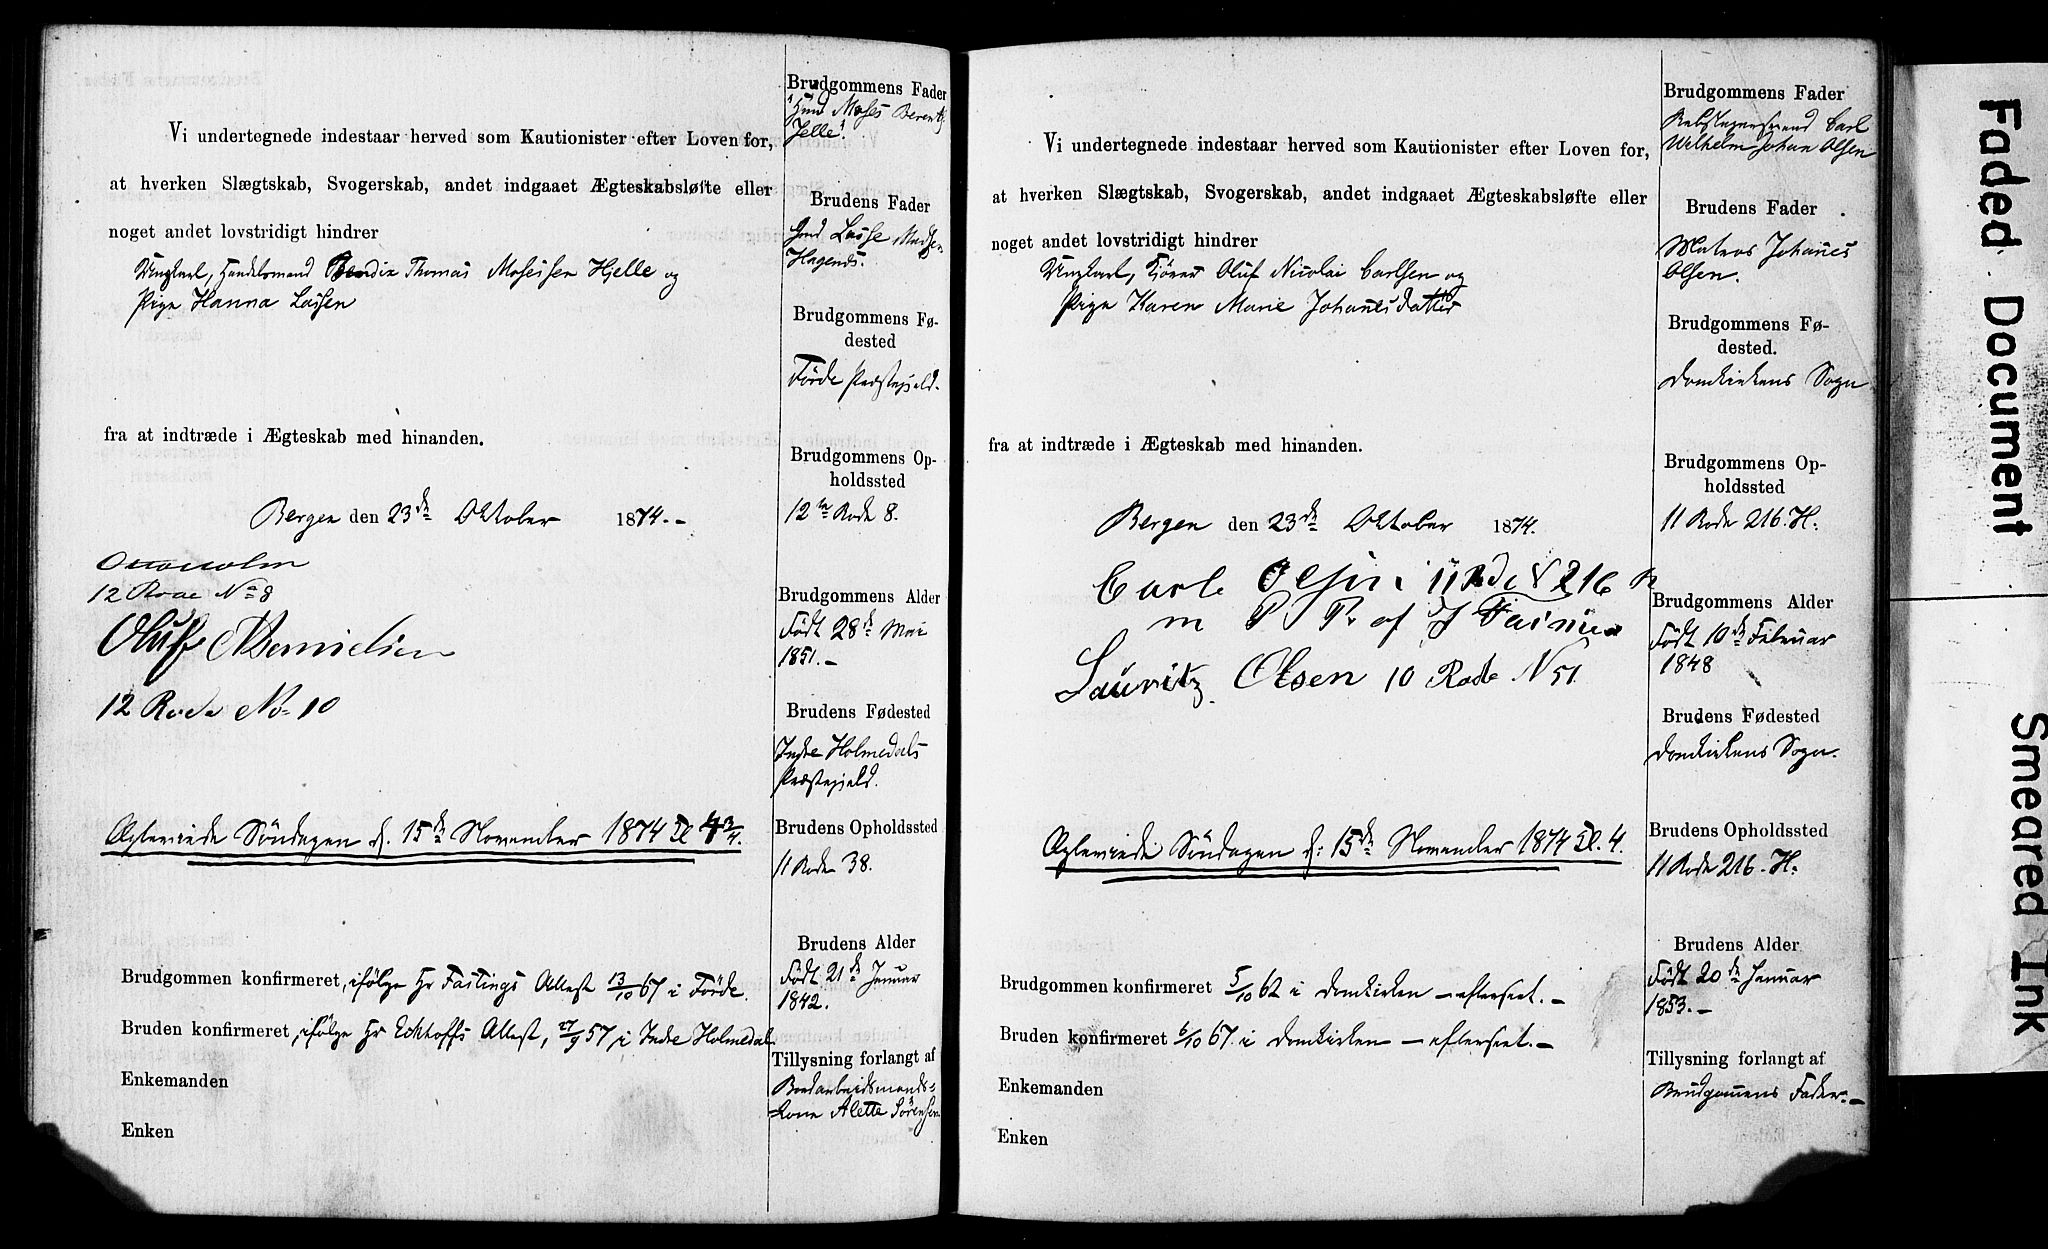 Vi undertegnede indestaar herved som Kautionister efter Loven for,
at hverken Slægtskab, Svogerskab, andet indgaaet Ægteskabsløfte eller
noget andet lovstridigt hindrer
Ungkarl, Handelsmand Bendix Thomas Mosessen Hjelle og
Pige Hanna Lassen
fra at indtræde i Ægteskab med hinanden.
Bergen den 23de Oktober 1874.-
12 Rode No 8
Oluf
12 Rode No 10
Ægteviede Söndagen d. 15de November 1874 Kl 4 3/4.
Brudgommen konfirmeret, ifölge Hr Fastings Attest 13/10 67 i Förde.
Bruden konfirmeret, ifölge Hr Eckhoffs Attest, 27/9 57, i Indre Holmedal
Enkemanden
Enken
Brudgommens Fader
Gmd Moses Berentz
Jelle.
Brudens Fader
Gmd Lasse Madsen
Hagenæs.
Brudgommens Fø-
dested
Förde Præstegjeld.
Brudgommens Op-
holdssted
12te Rode 8.
Brudgommens Alder
Födt 28de Mai
1851.-
Brudens Fødested
Indre Holmedals
Præstegjeld.
Brudens Opholdssted
11 Rode 38.
Brudens Alder
Födt 21de Januar
1842.
Tillysning forlangt af
Bordarbeidsmands-
kone Alette Sörensen
Vi undertegnede indestaar herved som Kautionister efter Loven for,
at hverken Slægtskab, Svogerskab, andet indgaaet Ægteskabsløfte eller
noget andet lovstridigt hindrer
Ungkarl, Oluf Nicolai Carlsen og
Pige Karen Marie Johannesdatter
fra at indtræde i Ægteskab med hinanden.
Bergen den 23de Oktober 1874.
Carl Olsen 11 Rode N 216
m P P. af J
Lauritz Olsen 10 Rode N 51
Ægteviede Söndagen d: 15de November 1874 Kl. 4.
Brudgommen konfirmeret 5/10 62 i Domkirken - efterseet.-
Bruden konfirmeret 6/10 67. i Domkirken - efterseet.-
Enkemanden
Enken
Brudgommens Fader
Rebslagersvend Carl
Wilhelm Johan Olsen
Brudens Fader
Matros Johanes
Olsen.
Brudgommens Fø-
dested.
Domkirkens Sogn
Brudgommens Op-
holdssted
11 Rode 216. H:
Brudgommens Alder
Födt 10de Februar
1848
Brudens Fødested
Domkirkens Sogn.
Brudens Opholdssted
11 Rode 216. H:
Brudens Alder
Födt 20de Januar
1853.-
Tillysning forlangt af
Brudgomens Fader.-
Faded Document
Smeared Ink